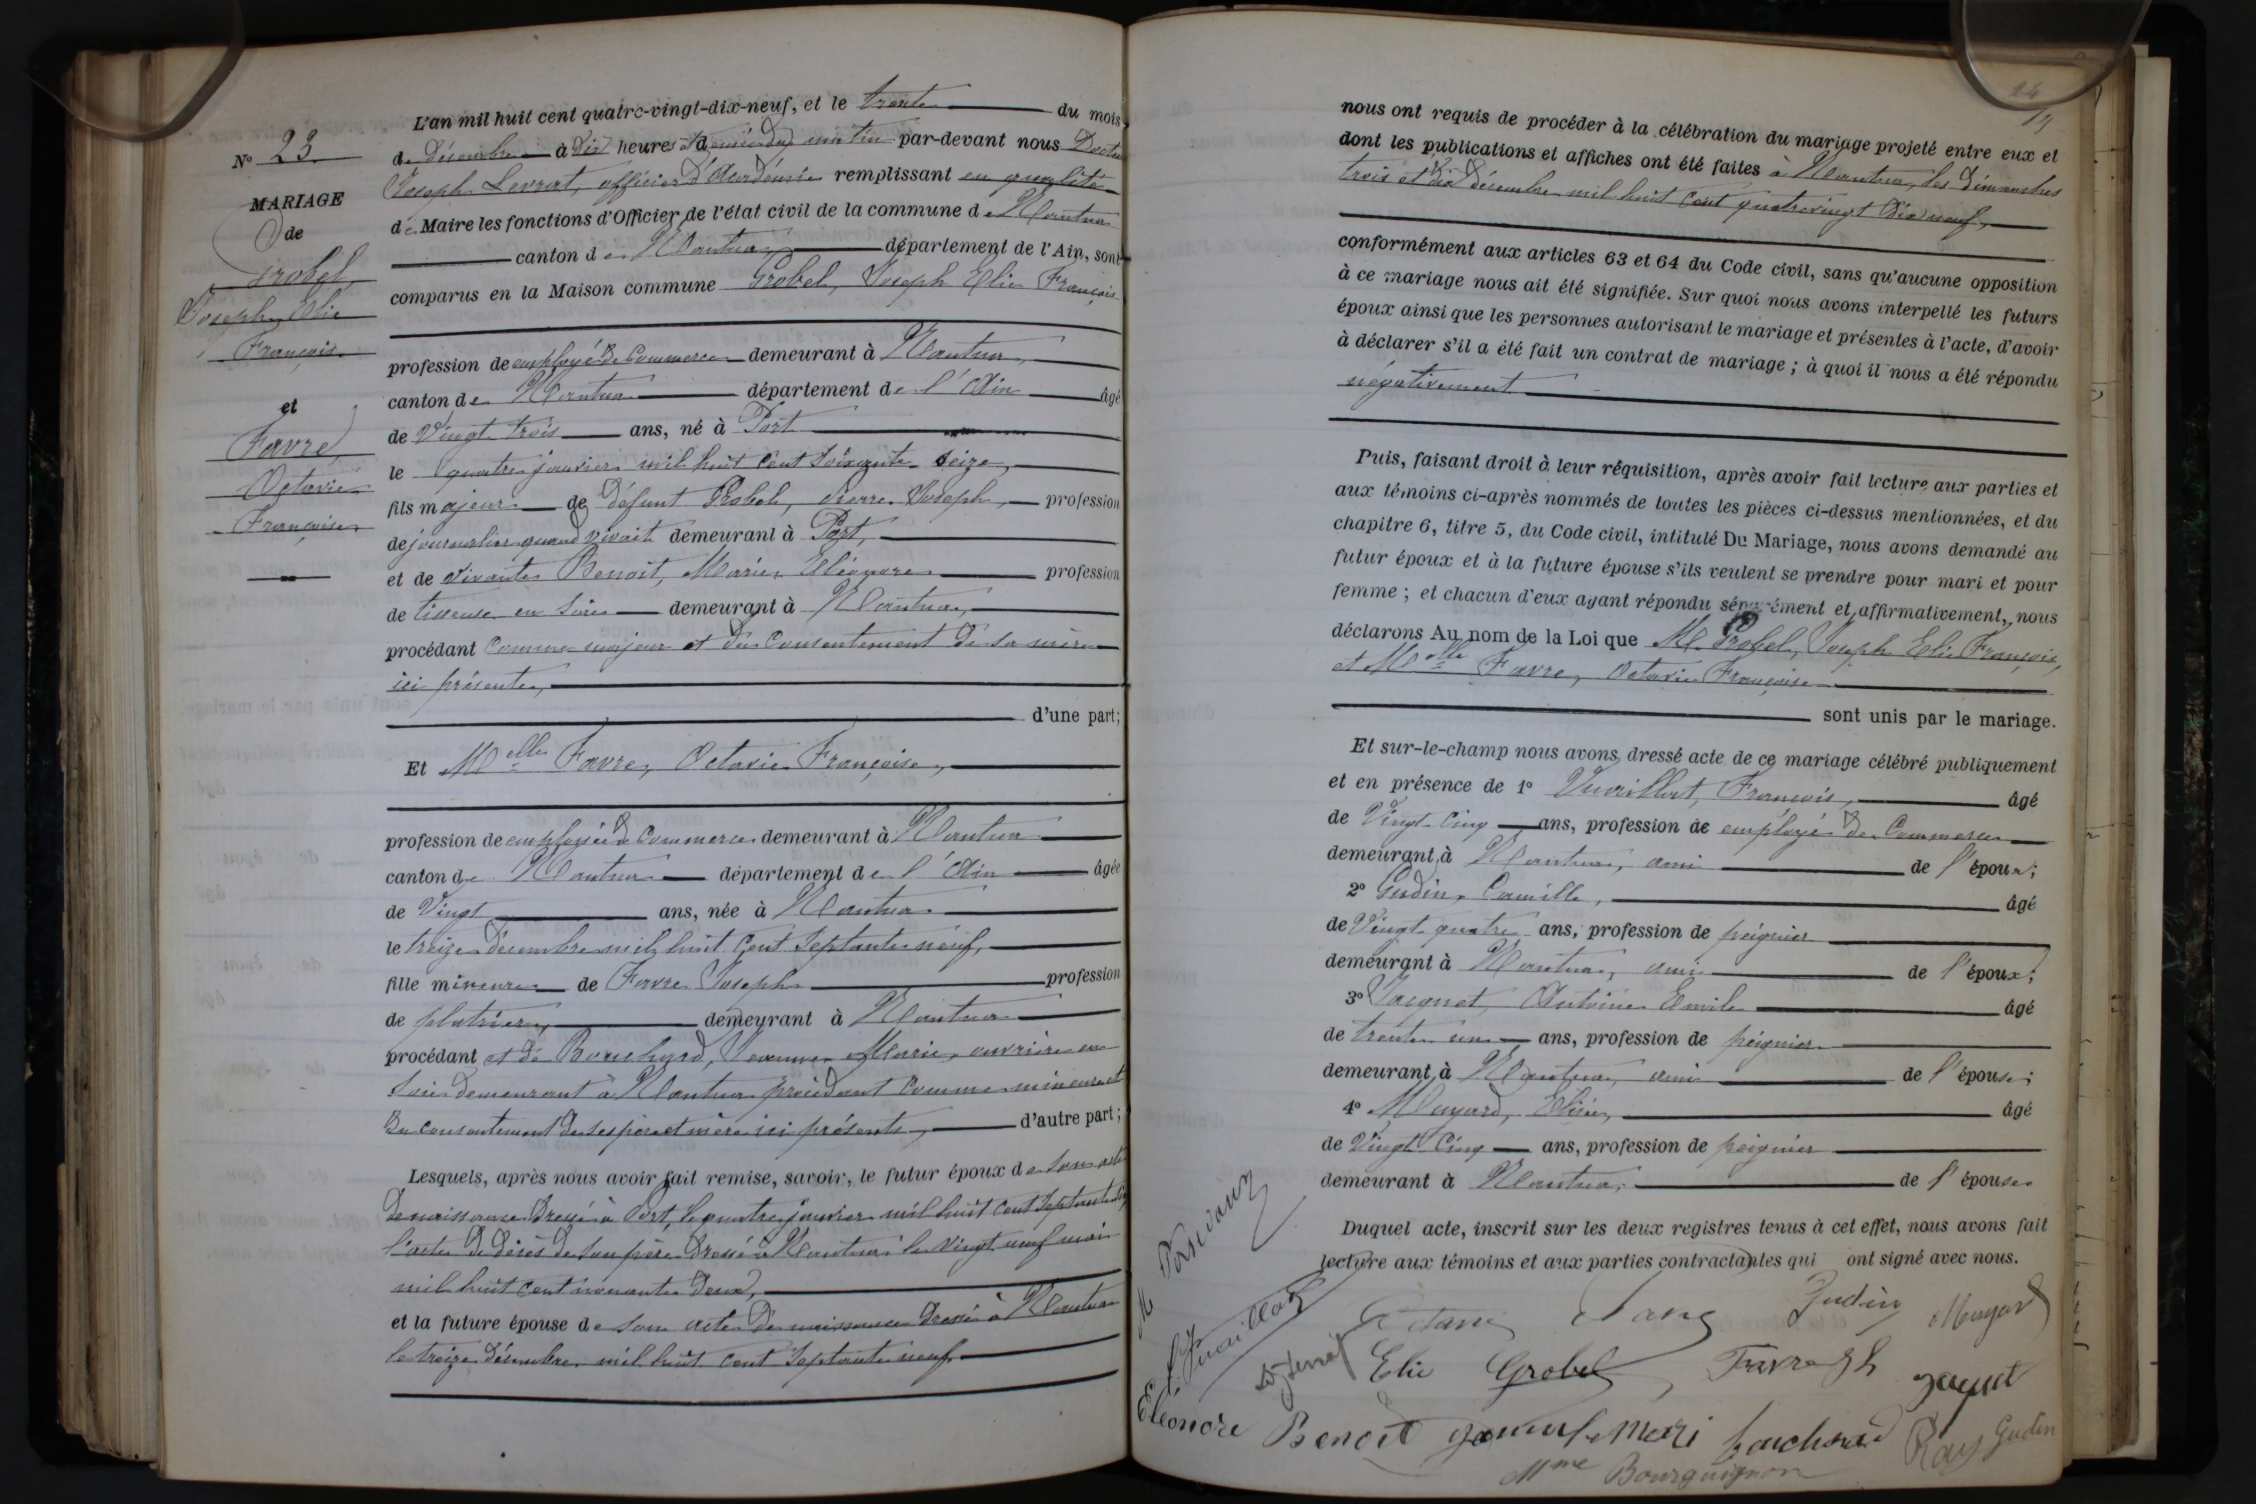 N° 23
MARIAGE
de
Grobel
Joseph Elie
François
et
Favre
Octavie
Française
L'an mil huit cent quatre-vingt-dix-neuf, et le trente du mois
de décembre à dix heures et demie du matin par-devant nous Docteur
Joseph Levrat, officier d'Académie remplissant en qualité
de Maire les fonctions d'Officier de l'état civil de la commune de Nantua
canton de Nantua, département de l'Ain, sont
comparus en la Maison commune Grobel, Joseph Elie François
profession de employé de Commerce demeurant à Nantua,
canton de Nantua département de l'Ain âgé
de Vingt trois ans, né à Port
le quatre janvier mil huit cent soixante-seize,
fils majeur de défunt Grobel, Pierre Joseph, profession
de journalier quand vivait demeurant à Port,
et de vivante Benoit, Marie Eléonore profession
de tisseuse en soie demeurant à Nantua,
procédant comme majeur et du consentement de sa mère
ici présente,
d'une part;
Et Melle Favre, Octavie Françoise,
profession de employée de Commerce demeurant à Nantua
canton de Nantua département de l'Ain âgée
de Vingt ans, née à Nantua
le treize décembre mil huit cent septante neuf,
fille mineure de Favre Joseph profession
de plâtrier, demeurant à Nantua
procédant et de Bouchard, Jeanne Marie, ouvrière en
soie demeurant à Nantua procédant comme mineure et
du consentement de ses père et mère ici présents, d'autre part;
Lesquels, après nous avoir fait remise, savoir, le futur époux de son acte
de naissance dressé à Port, le quatre janvier mil huit cent septante
l'acte de décès de son père dressé à Nantua le vingt neuf
mil huit cent nonante deux,
et la future épouse de son acte de naissance dressé à Nantua
le treize décembre mil huit cent septante neuf
nous ont requis de procéder à la célébration du mariage projeté entre eux et
dont les publications et affiches ont été faites à Nantua, les dimanches
trois et dix décembre mil huit cent quatrevingt dix neuf,
conformément aux articles 63 et 64 du Code civil, sans qu'aucune opposition
à ce mariage nous ait été signifiée. Sur quoi nous avons interpellé les futurs
époux ainsi que les personnes autorisant le mariage et présentes à l'acte, d'avoir
à déclarer s'il a été fait un contrat de mariage ; à quoi il nous a été répondu
négativement
Puis, faisant droit à leur réquisition, après avoir fait lecture aux parties et
aux témoins ci-après nommés de toutes les pièces ci-dessus mentionnées, et du
chapitre 6, titre 5, du Code civil, intitulé Du Mariage, nous avons demandé au
futur époux et à la future épouse s'ils veulent se prendre pour mari et pour
femme ; et chacun d'eux ayant répondu séparément et affirmativement, nous
déclarons Au nom de la Loi que M. Grobel, Joseph Elie François,
et Melle Favre, Octavie Françoise
sont unis par le mariage.
Et sur-le-champ nous avons dressé acte de ce mariage célébré publiquement
et en présence de 1° Vuaillat, François, âgé
de Vingt-Cinq ans, profession de employé de Commerce
demeurant à Nantua, ami de l'époux;
2° Gudin, Camille, âgé
de Vingt quatre ans, profession de peignier
demeurant à Nantua, ami de l'époux;
3° Jacquet, Antoine Emile âgé
de trente un ans, profession de peignier
demeurant à Nantua, ami de l'épouse;
4° Mugard, Elisée, âgé
de Vingt Cinq ans, profession de peignier
demeurant à Nantua, de l'épouse
Duquel acte, inscrit sur les deux registres tenus à cet effet, nous avons fait
lecture aux témoins et aux parties contractantes qui ont signé avec nous.
Gudin
Elie Grobel
Favre
Eléonore Benoit
Bouchard
Ray Gudin
Mme Bourguignon